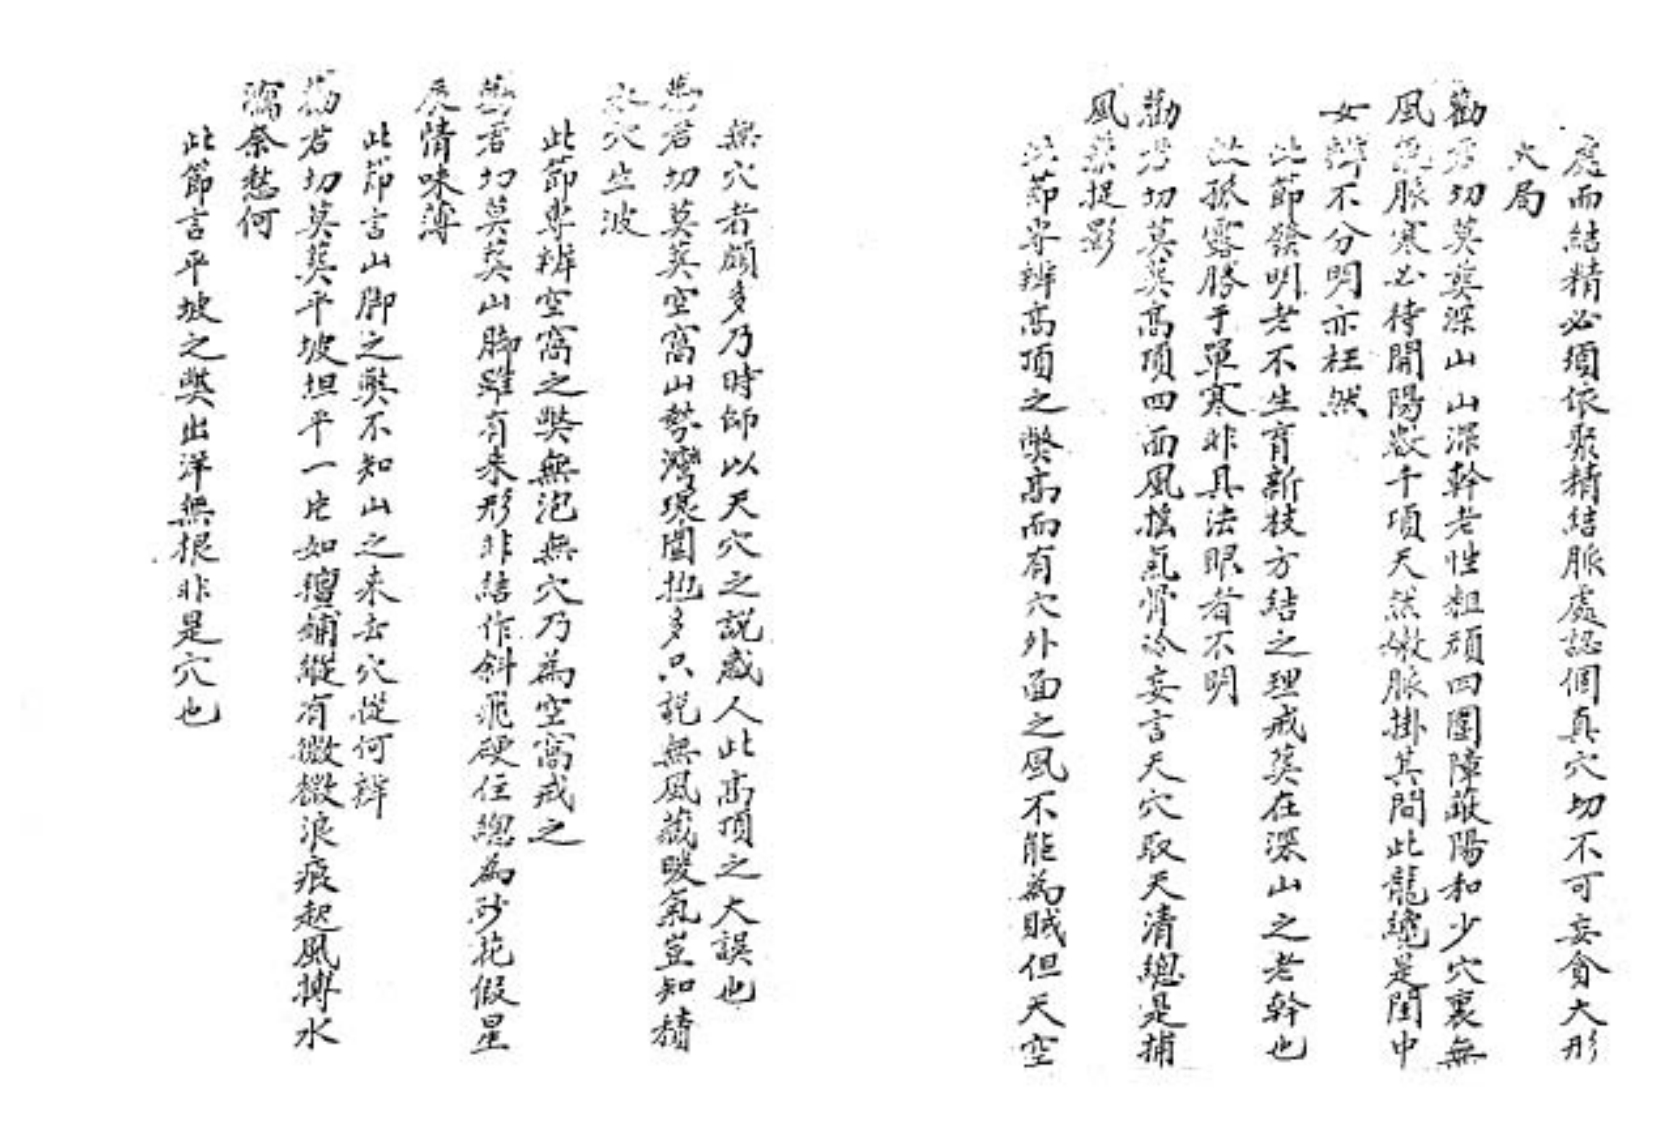 處而結精必須依聚精結脈處認個真穴切不可妄貪大形
大局
勸君切莫葬深山山深幹老性粗頑四圍障蔽陽和少穴裏無
風脈寒必待開陽數千項天然嫩脈掛其間此龍纔是閨中
女辨不分明亦枉然
此節發明老不生育新枝方結之理戒葬在深山之老幹也
孤露勝于單寒非具法眼者不明
勸君切莫葬高項四面風搖氣骨冷妄言天穴取天清總是捕
風捉影
此節岩辨高頂之弊高而有穴外面之風不能為賊但天空
無穴者頗多乃時師以天穴之說惑人此高頂之大誤也
勸君切莫葬空窩山勢灣環圍抱多只說無風藏暖氣豈知積
水穴生波
此節專辨空窩之弊無泡無穴乃為空窩戒之
勸君切莫葬山腳雖有來形非結作斜飛硬住總為砂花假星
辰情味薄
此節言山腳之弊不知山之來去穴從何辨
勸君切莫葬平坡坦平一片如氊鋪縱有微微浪痕起風搏水
瀉奈愁何
此節言平坡之弊出洋無根非是穴也